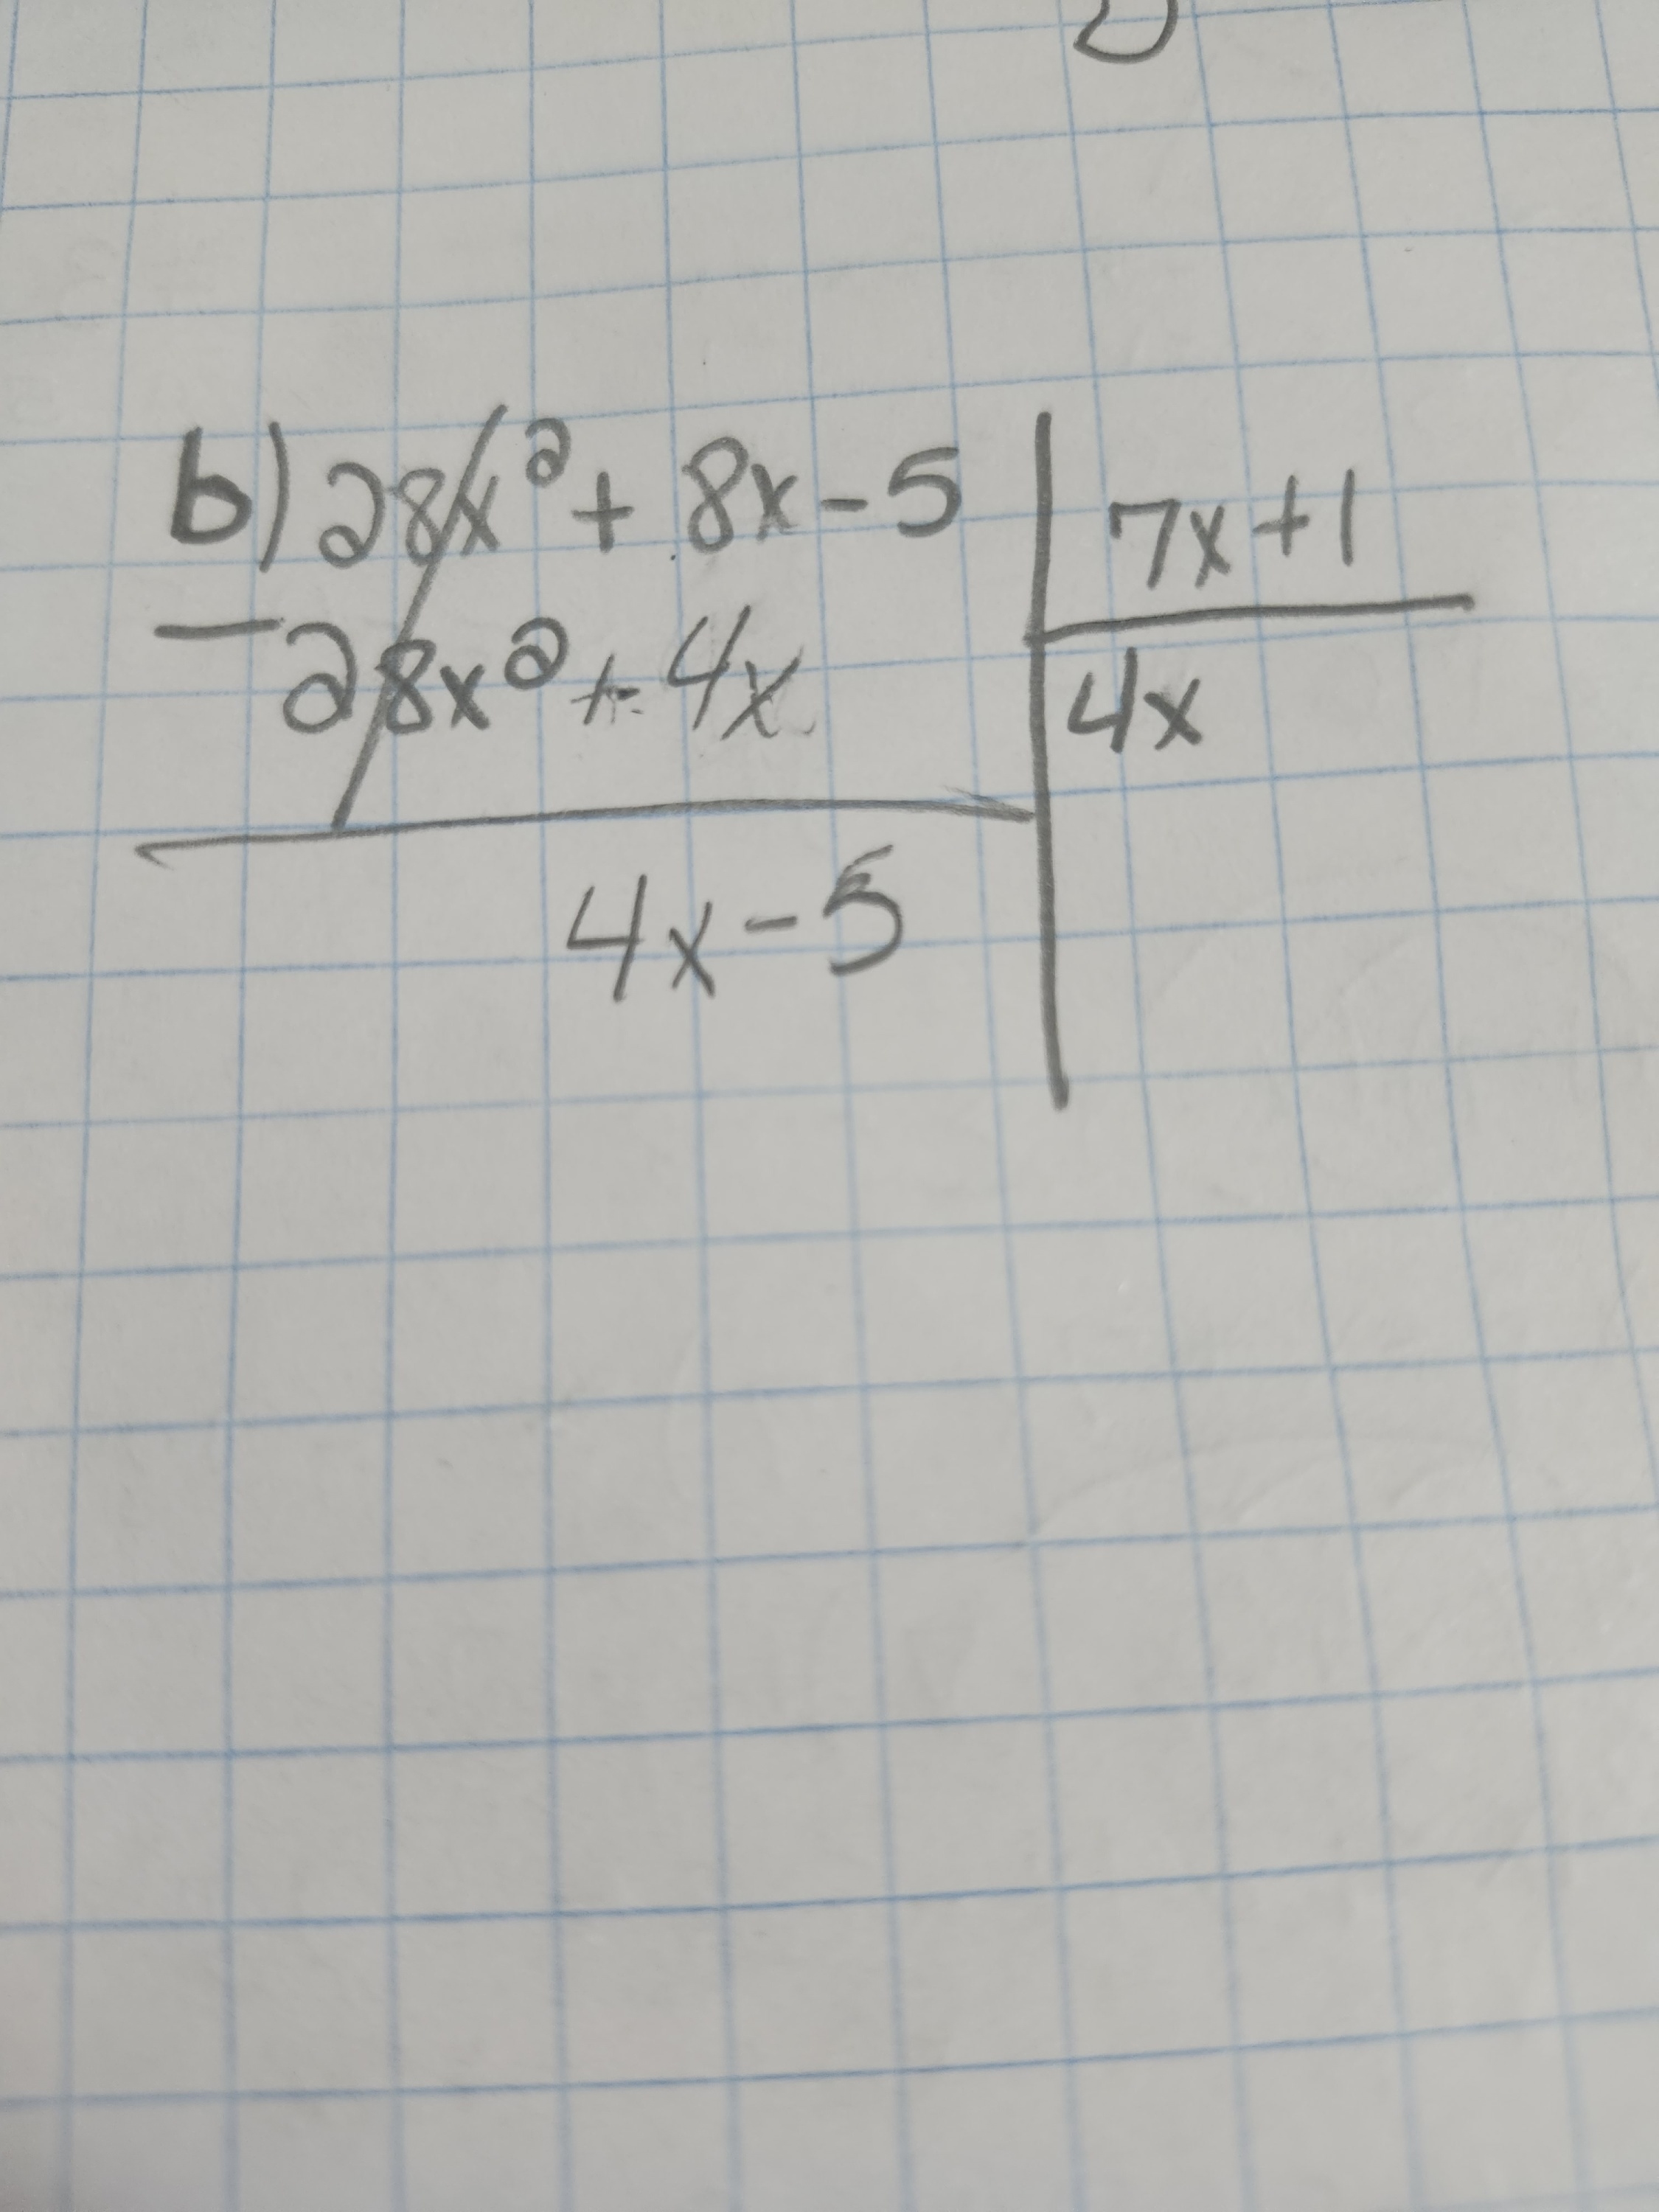 b) 28x² + 8x - 5 | 7x + 1
- 28x² + 4x | 4x
4x - 5